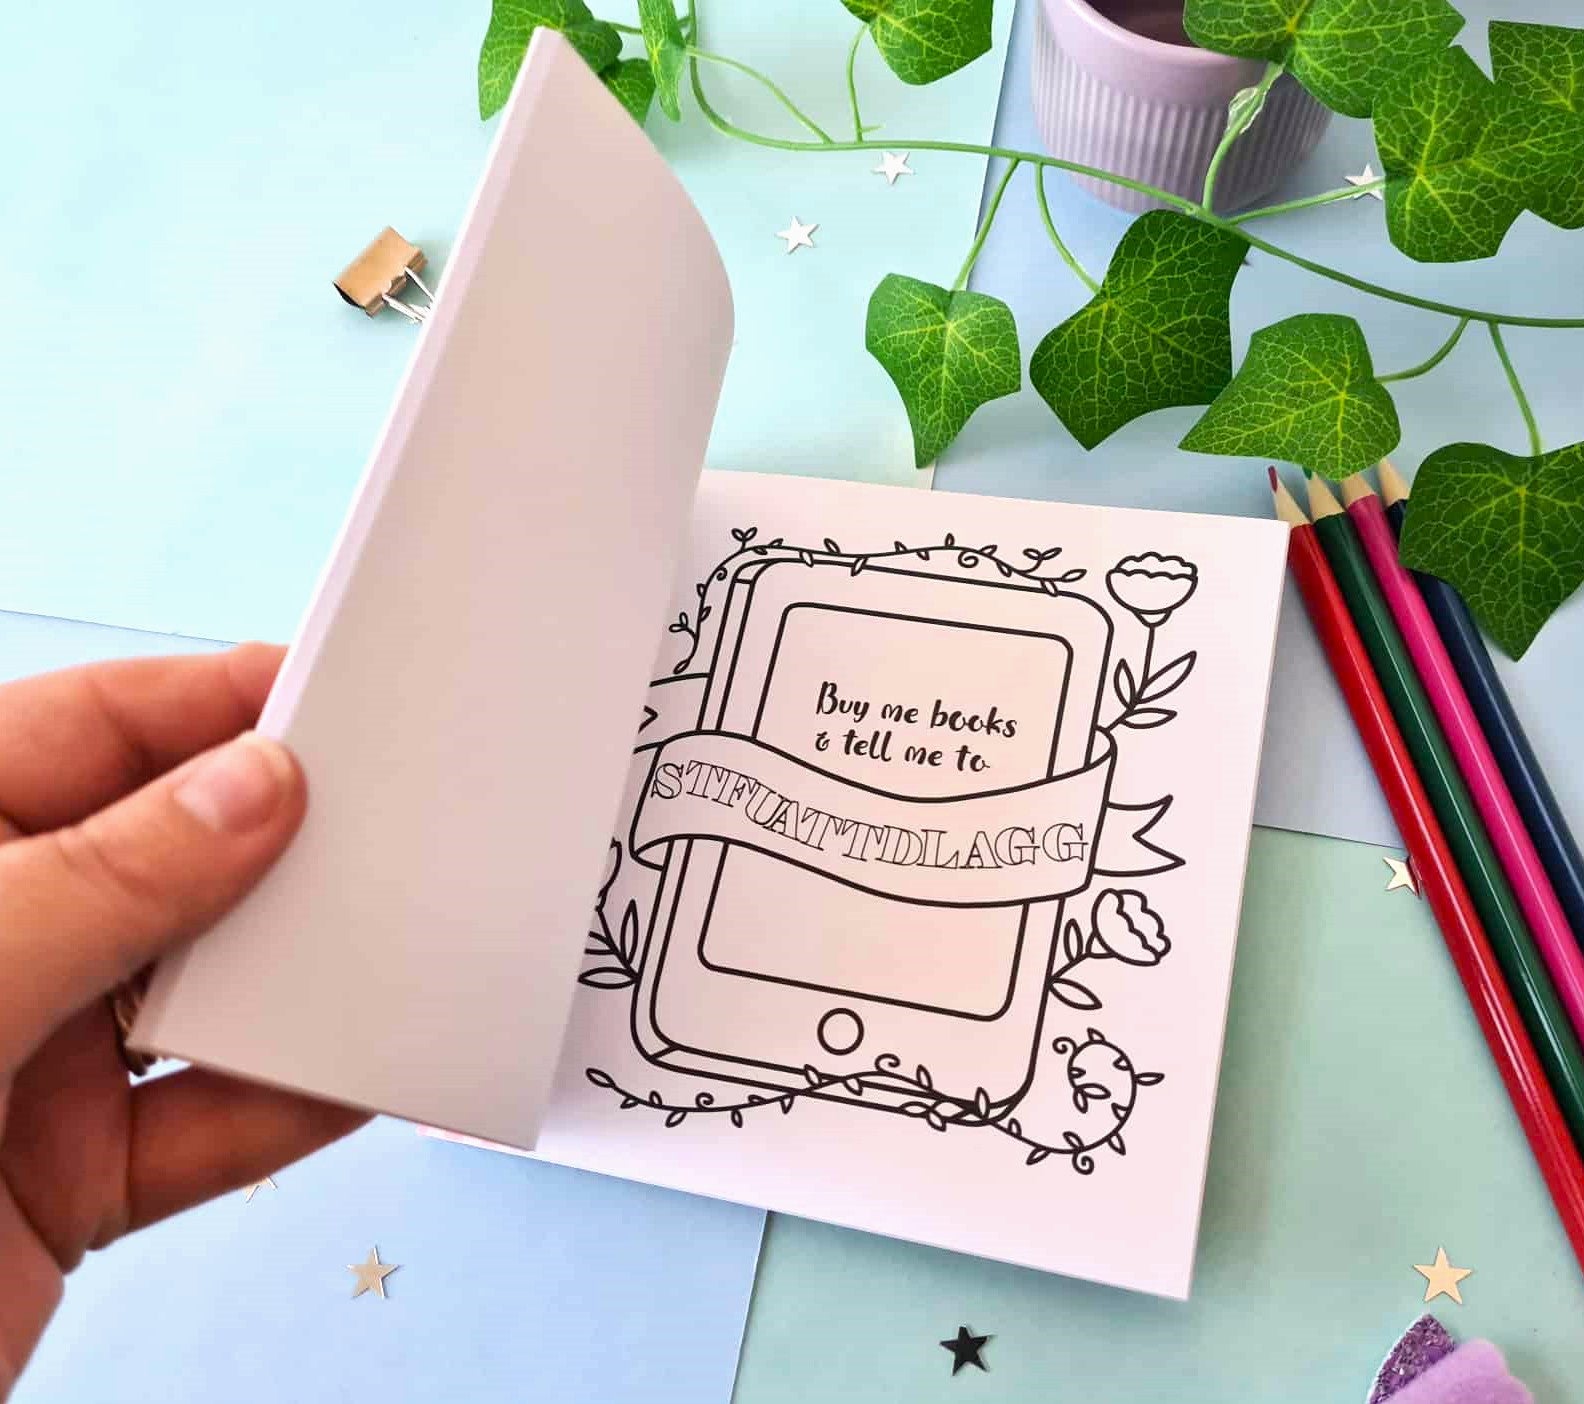 Buy me books
& tell me to
STFUATTDLAGG